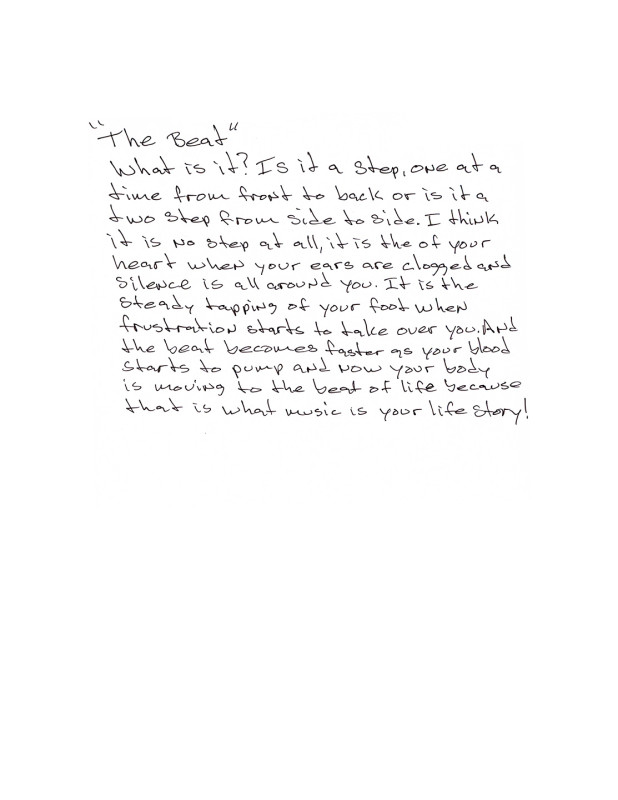 "The Beat"
What is it? Is it a step, one at a
time from front to back or is it a
two step from side to side. I think
it is no step at all, it is the of your
heart when your ears are clogged and
silence is all around you. It is the
steady tapping of your foot when
frustration starts to take over you. And
the beat becomes faster as your blood
starts to pump and now your body
is moving to the beat of life because
that is what music is your life story!